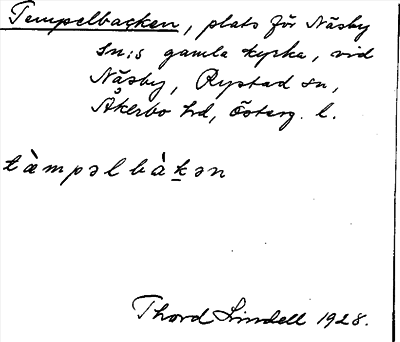 Tempelbacken, plats för Näsby
sn:s gamla kyrka, vid
Näsby, Rystad sn,
Åkerbo hd, Österg. l.
tæ̀mpəl bàk̲ən
Thord Lindell 1928.